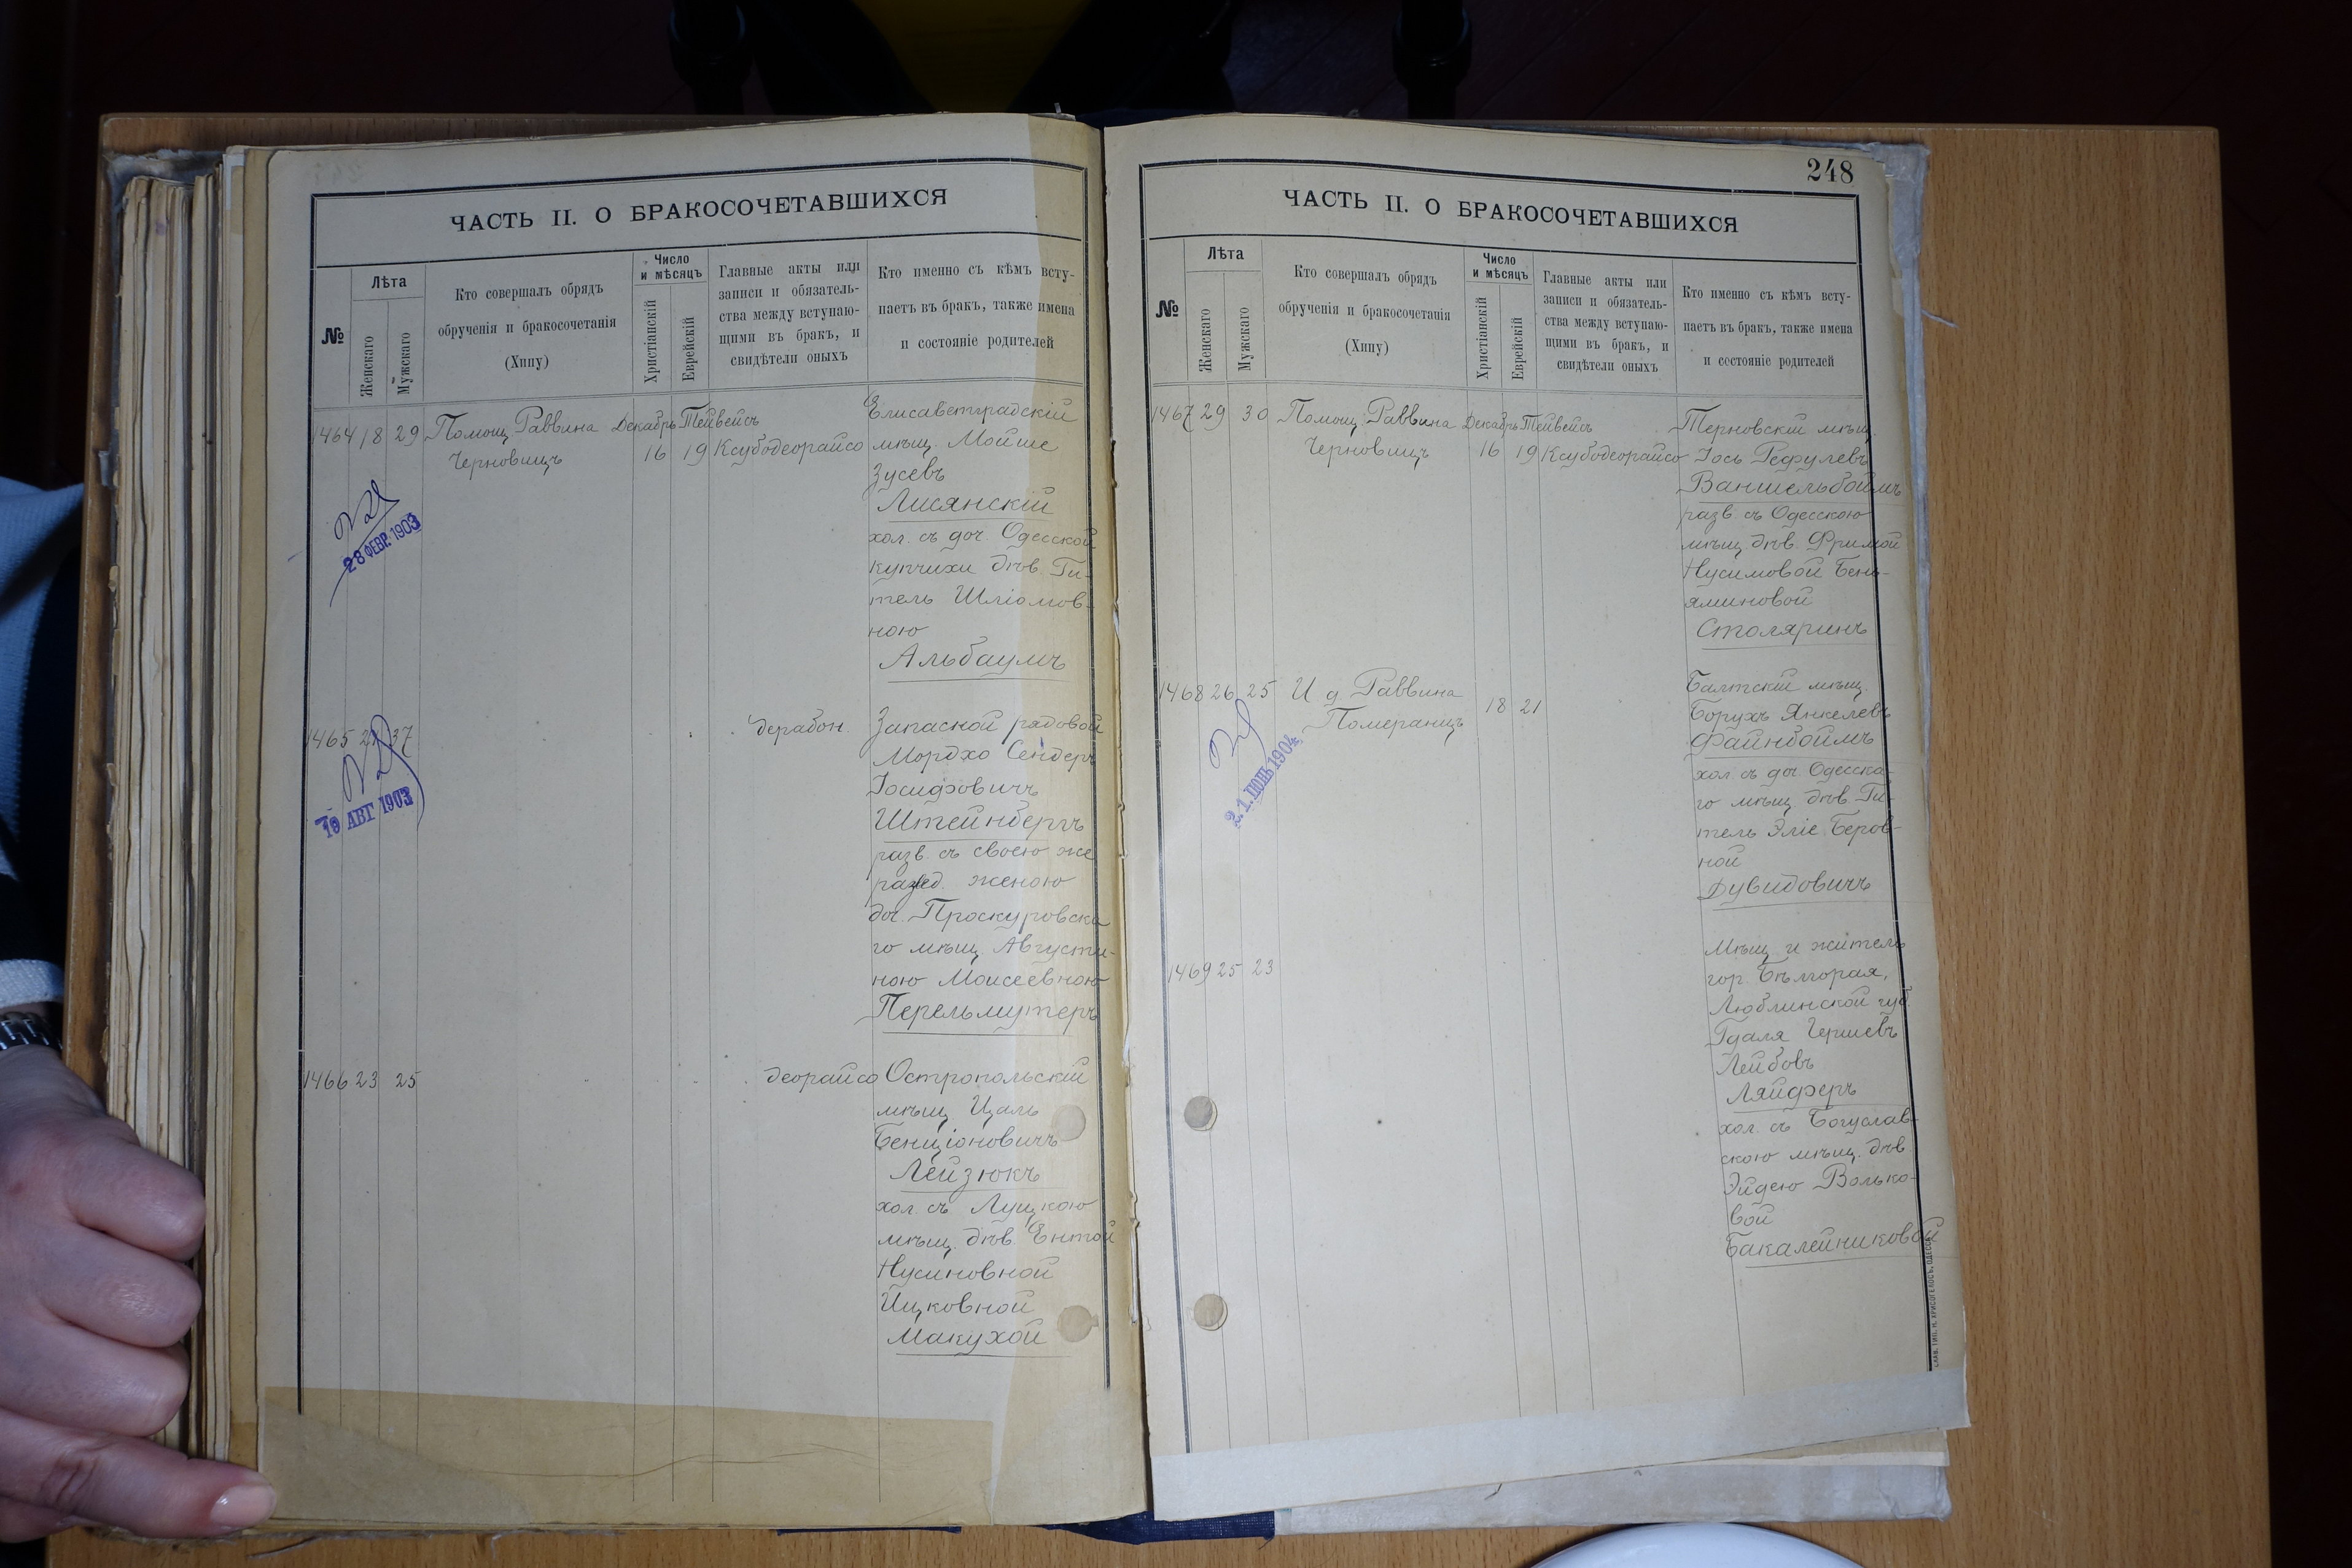 ЧАСТЬ II. О БРАКОСОЧЕТАВШИХСЯ
№
Лѣта
Женскаго
Мужскаго
Кто совершалъ обрядъ
обрученія и бракосочетанія
(Хипу)
Число
и мѣсяцъ
Христіанскій
Еврейскій
Главные акты или
записи и обязатель-
ства между вступаю-
щими въ бракъ, и
свидѣтели оныхъ
Кто именно съ кѣмъ всту-
паетъ въ бракъ, также имена
и состояніе родителей
1464 18 29 Помощ. Раввина Декабрь Тейвейсъ
Черновицъ 16 19 Ксубодеорайсо
Елисаветградскій
мѣщ. Мойше
Зусевъ
Лисянскій
хол. съ доч. Одесской
купчихи дѣв. Ги-
тель Шліомов-
ною
Альбаумъ
28 ФЕВР. 1903
1465 37 дерабон.
Запасной рядовой
Мордхо Сендеръ
Іосифовичъ
Штейнбергъ
разв. съ своею же
развед. женою
доч. Проскуровска
го мѣщ. Августи-
ною Моисеевною
Перельмутеръ
10 АВГ 1903
1466 23 25 деорайсо
Остропольскій
мѣщ. Цаль
Бенціоновичъ
Лейзюкъ
хол. съ Луцкою
мѣщ. дѣв. Ентой
Нусиновной
Ицковной
Макухой
248
ЧАСТЬ II. О БРАКОСОЧЕТАВШИХСЯ
№
Лѣта
Женскаго
Мужскаго
Кто совершалъ обрядъ
обрученія и бракосочетанія
(Хипу)
Число
и мѣсяцъ
Христіанскій
Еврейскій
Главные акты или
записи и обязатель-
ства между вступаю-
щими въ бракъ, и
свидѣтели оныхъ
Кто именно съ кѣмъ всту-
паетъ въ бракъ, также имена
и состояніе родителей
1467 29 30 Помощ. Раввина Декабрь Тейвейсъ
Черновицъ 16 19 Ксубодеорайсо
Терновскій мѣщ.
Іось Рефулевъ
Ваншельбоймъ
разв. съ Одесскою
мѣщ. дѣв. Фримой
Нусимовой Бень-
яминовой
Столяринъ
1468 26 25 И. д. Раввина
Померанцъ 18 21
Балтскій мѣщ.
Борухъ Янкелевъ
Файнбоймъ
хол. съ доч. Одесска-
го мѣщ. дѣв. Ги-
тель Эліе Беров-
ной
Дувидовичъ
1904
1469 25 23
Мѣщ. и житель
гор. Бѣлгорая,
Люблинской губ.
Гдаля Гершевъ
Лейбовъ
Ляйферъ
хол. съ Богуслав-
скою мѣщ. дѣв
Эйдею Волько-
вой
Бакалейниковой
СЛАВ. ТИП. Н. ХРИСОГЕЛОСЪ, ОДЕССА